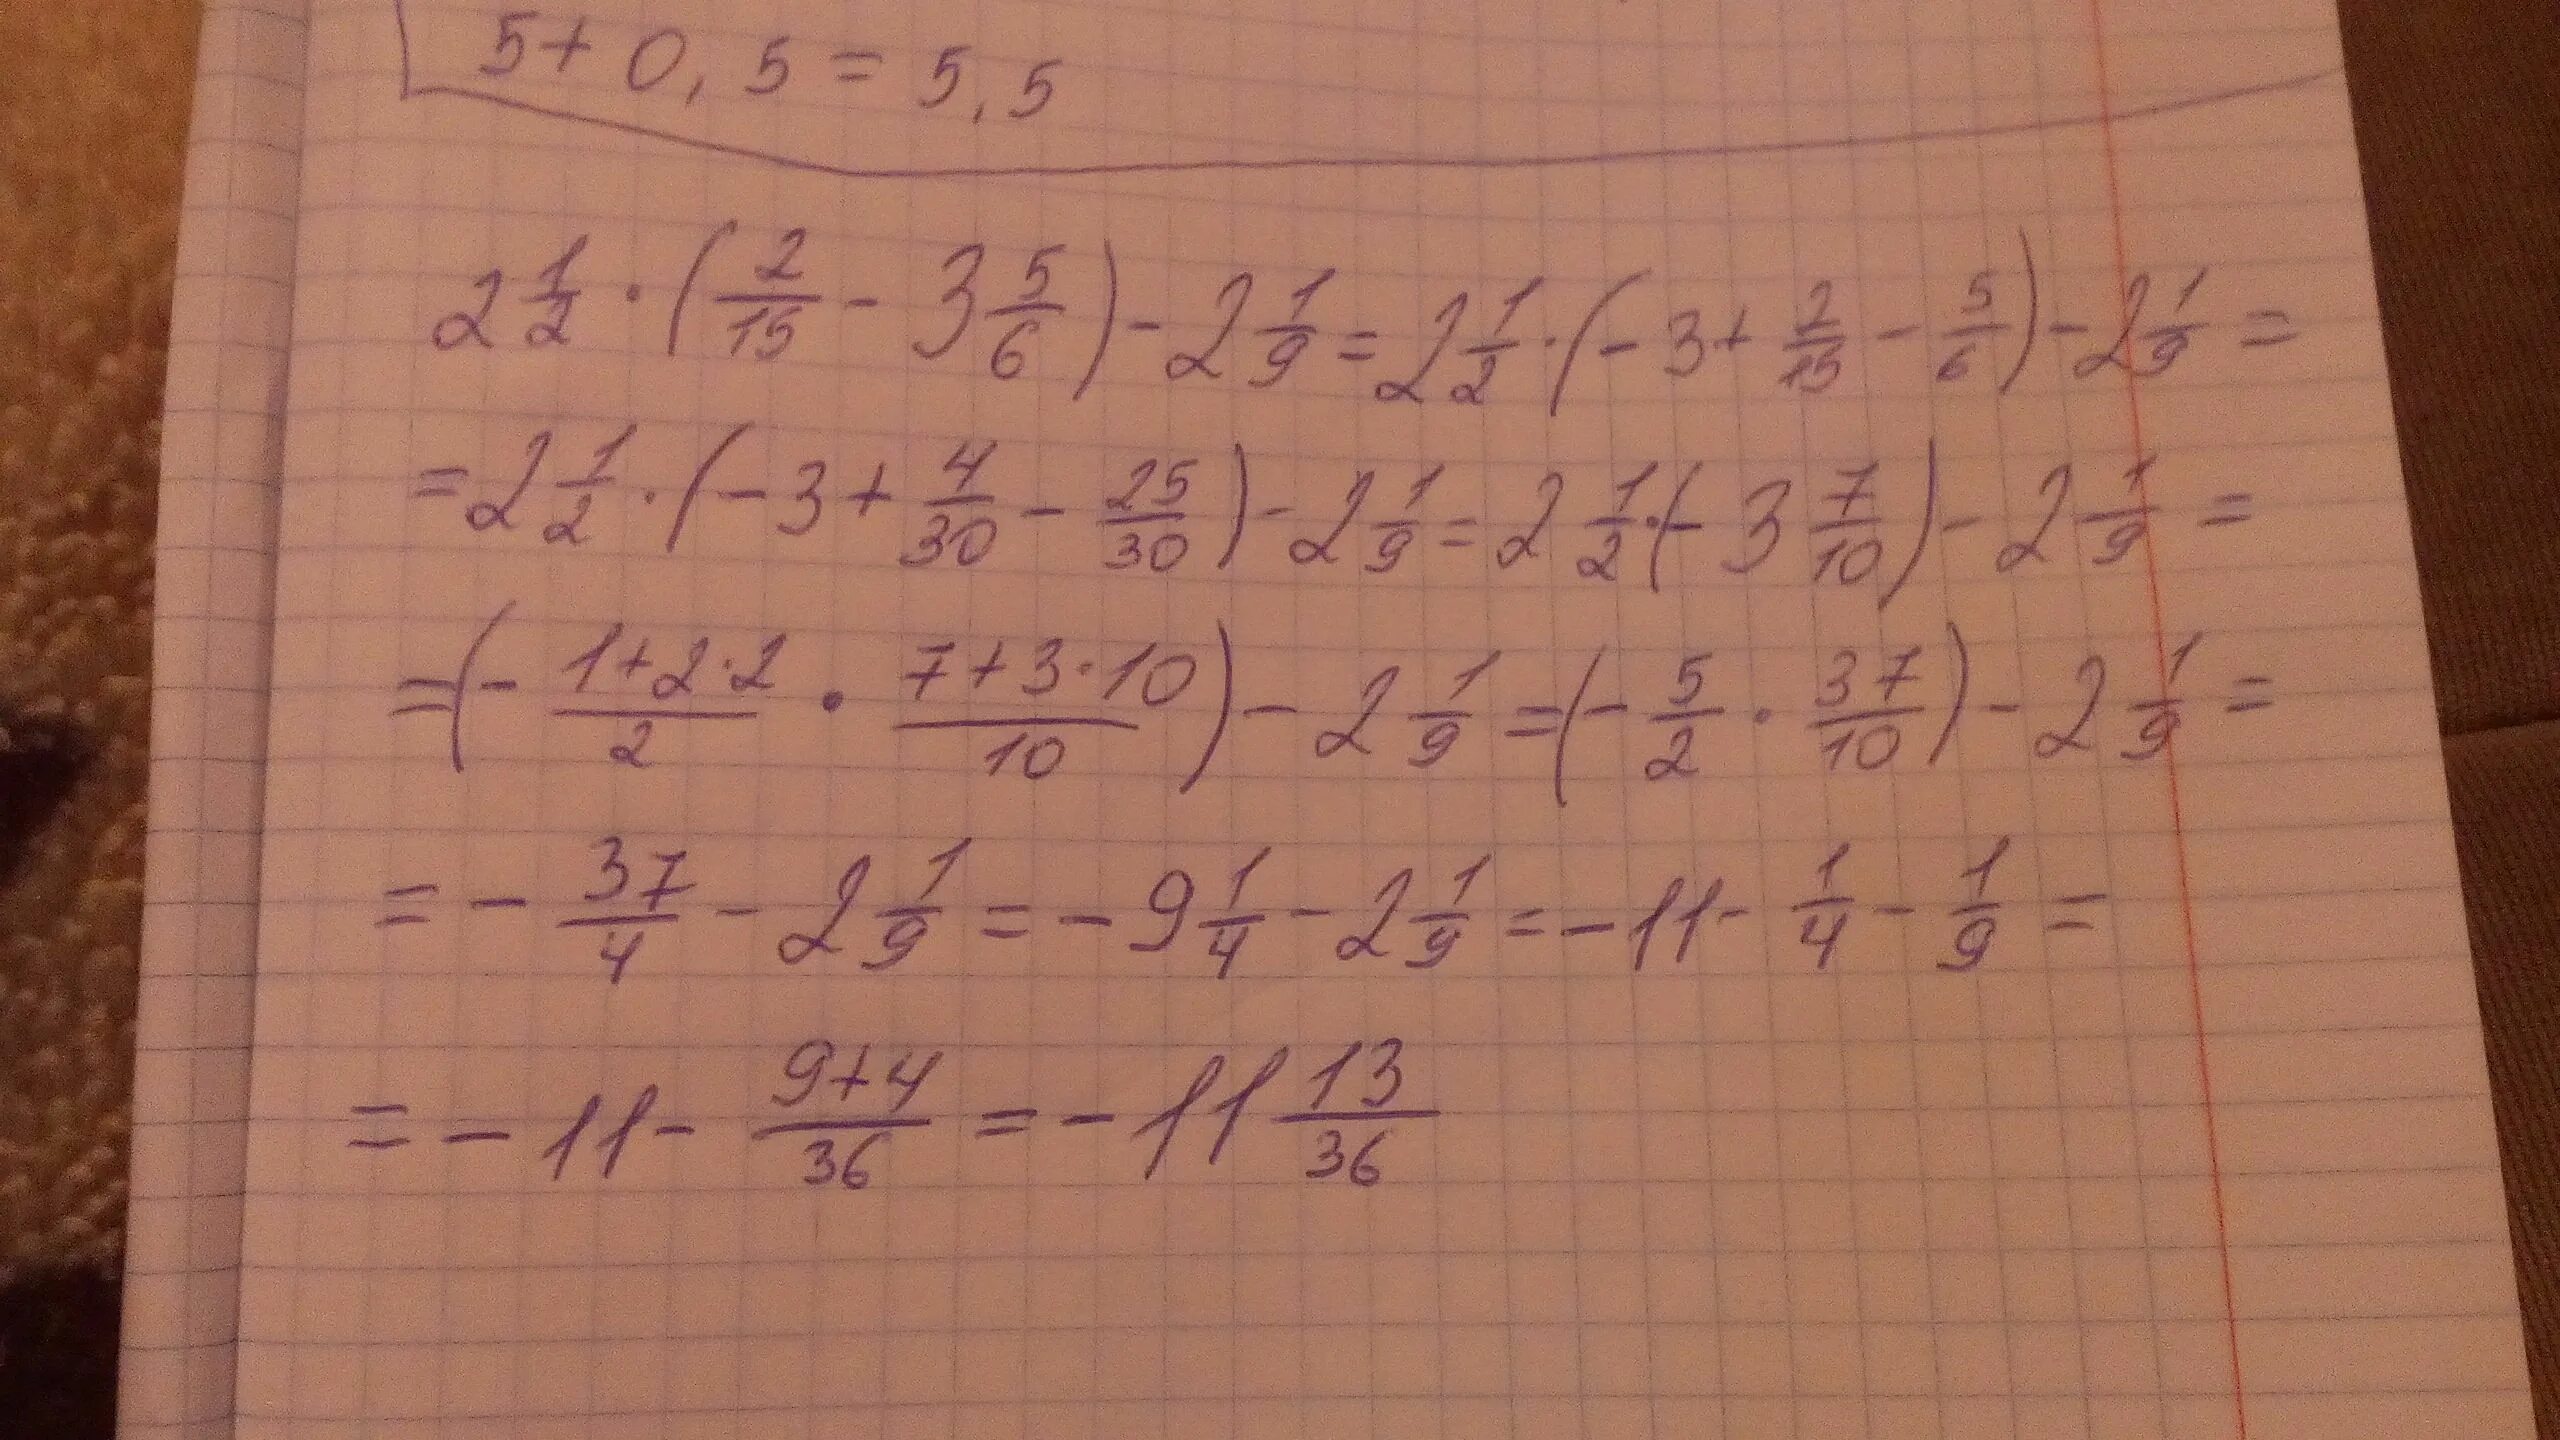 5 + 0,5 = 5,5
2 1/2 · (2/15 - 3 5/6) - 2 1/9 = 2 1/2 · (-3 + 2/15 - 5/6) - 2 1/9 =
= 2 1/2 · (-3 + 4/30 - 25/30) - 2 1/9 = 2 1/2 · (-3 7/10) - 2 1/9 =
= (- (1+2·2)/2 · (7+3·10)/10) - 2 1/9 = (- 5/2 · 37/10) - 2 1/9 =
= - 37/4 - 2 1/9 = -9 1/4 - 2 1/9 = -11 - 1/4 - 1/9 =
= -11 - (9+4)/36 = -11 13/36